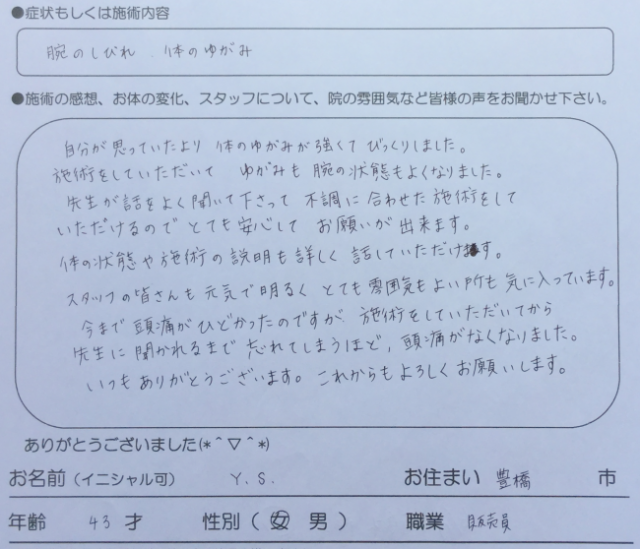 ●症状もしくは施術内容
腕のしびれ 体のゆがみ
●施術の感想、お体の変化、スタッフについて、院の雰囲気など皆様の声をお聞かせ下さい。
自分が思っていたより 体のゆがみが強くて びっくりしました。
施術をしていただいて ゆがみも 腕の状態もよくなりました。
先生が話をよく聞いて下さって 不調に合わせた施術をして
いただけるので とても安心して お願いが出来ます。
体の状態や施術の説明も詳しく 話していただけます。
スタッフの皆さんも 元気で明るく とても雰囲気もよい所も 気に入っています。
今まで 頭痛がひどかったのですが、施術をしていただいてから
先生に 聞かれるまで 忘れてしまうほど、頭痛がなくなりました。
いつもありがとうございます。これからもよろしくお願いします。
ありがとうございました(*^▽^*)
お名前(イニシャル可) Y.S. お住まい 豊橋 市
年齢 43 才 性別( 女 男 ) 職業 販売員